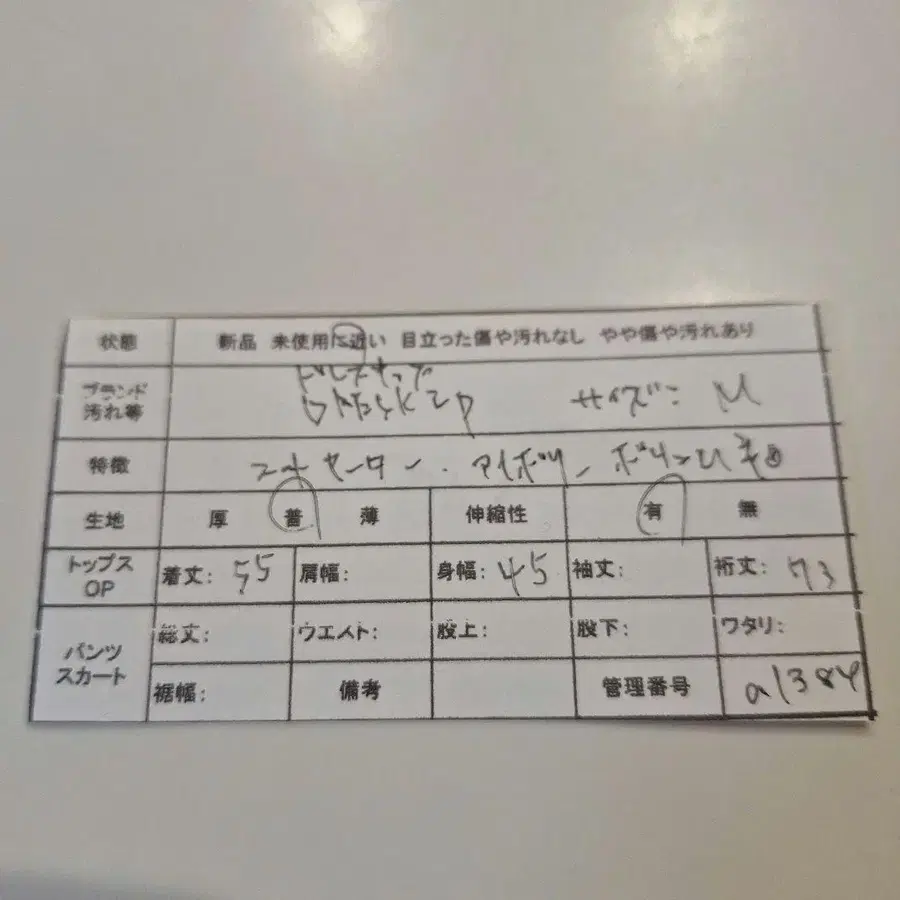 状態 新品 未使用に近い 目立った傷や汚れなし やや傷や汚れあり
ブランド
汚れ等 サイズ: M
特徴 セーター. アイボリー
生地 厚 普 薄 伸縮性 有 無
トップス
OP 着丈: 55 肩幅: 身幅: 45 袖丈: 裄丈: 73
パンツ
スカート 総丈: ウエスト: 股上: 股下: ワタリ:
裾幅: 備考 管理番号 a1384